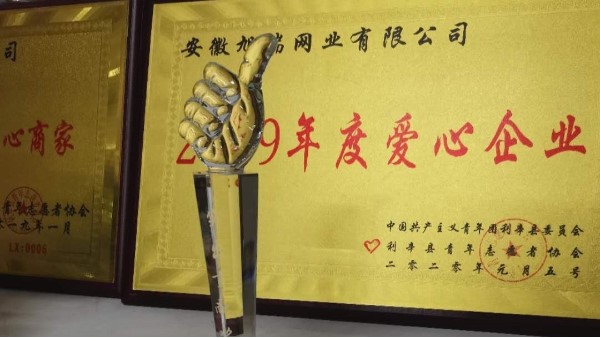 司
心商家
志愿者协会
九年一月
LX-0006
安徽旭瑞网业有限公司
2019年度爱心企业
中国共产主义青年团利辛县委员会
利辛县青年志愿者协会
二〇二〇年元月五号